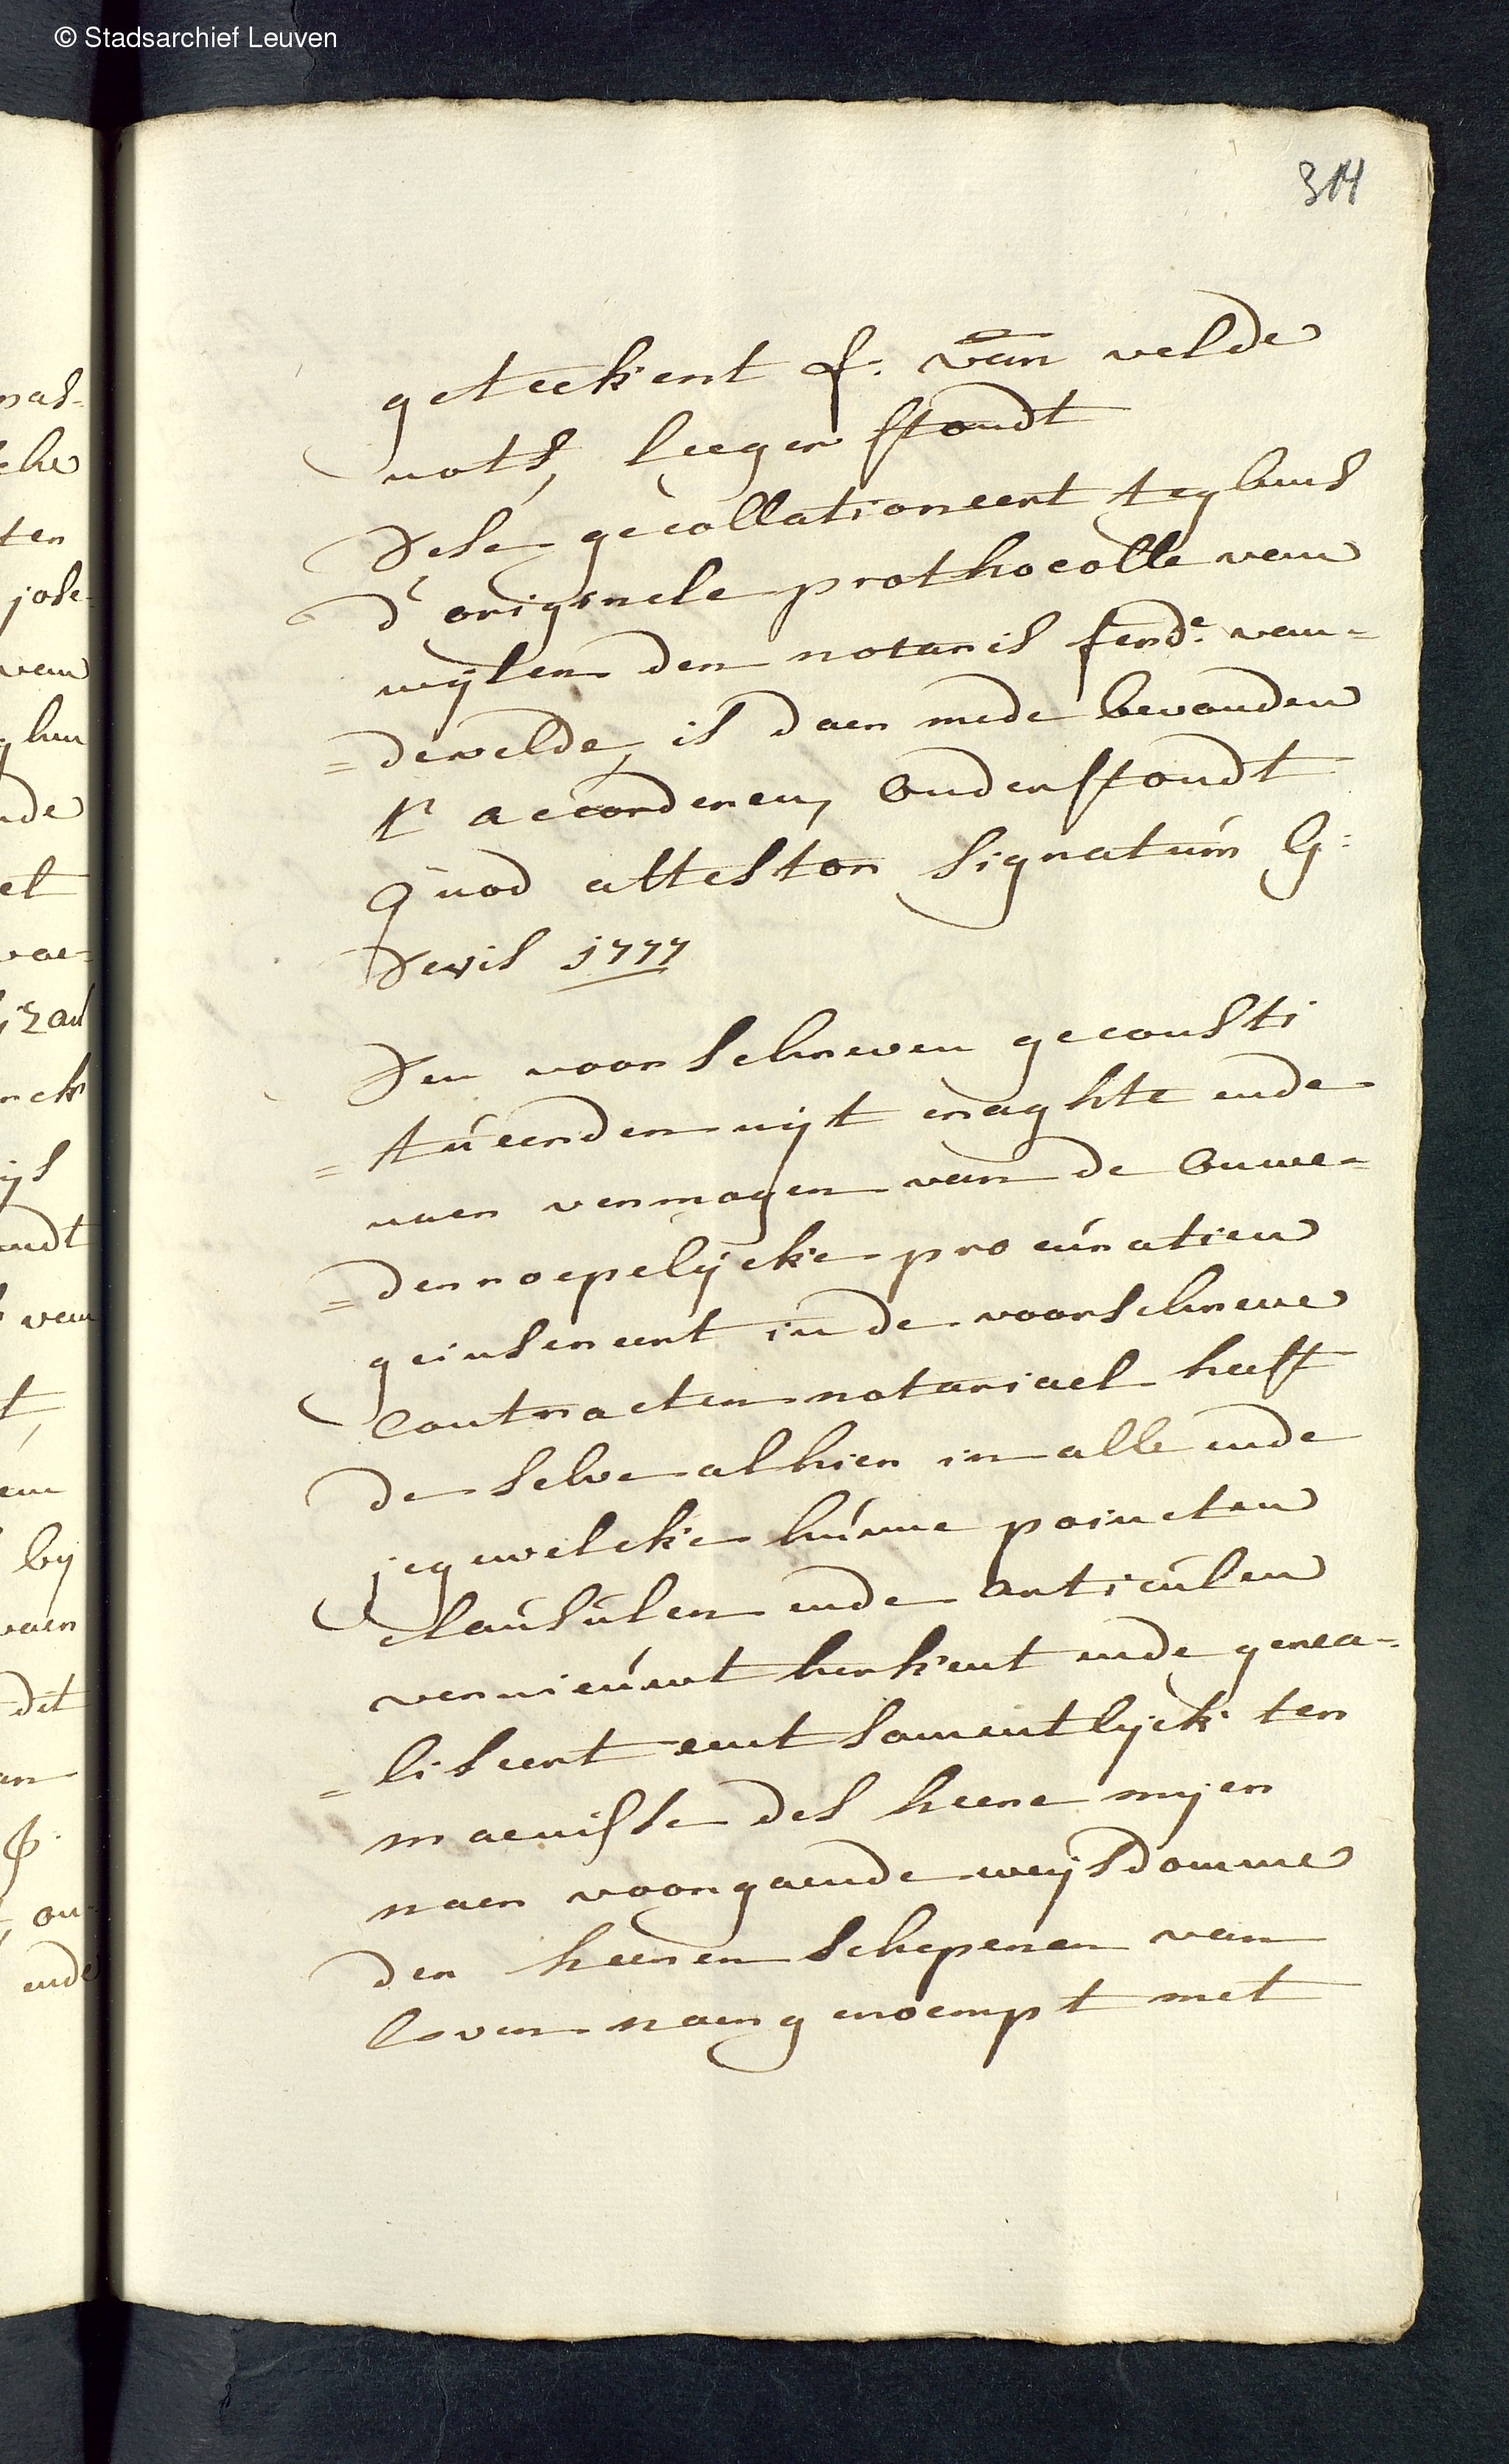 © Stadsarchief Leuven
314
geteekent f. van velde
nots, leeger stondt
Dese gecollationeert teghens
d'originele prothocolle van
wylen den notaris ferd.e van=
=develde, is daer mede bevonden
t' accorderen, onderstondt
Quod attestor signatum G:
Dewis 1777
Den voorschreven geconsti
=tueerden uijt craghte ende
naer vermogen van de onwe=
=derroepelijcke procuratien
geinsereert in de voorschreve
Contracten notariael heeft
de selve alhier in alle ende
jegewelcke hunne poincten
Clausulen ende articulen
vernieuwt herkent ende gerea=
=liseert ent samentlijck ter
maenisse des heere mijer
naer voorgaende weijsdomme
der heeren schepenen van
loven naergenoempt met
nas=
che
ten
jose
van
hun
nde
et
vae=
ndt
van
t,
bij
vaer
det
ende